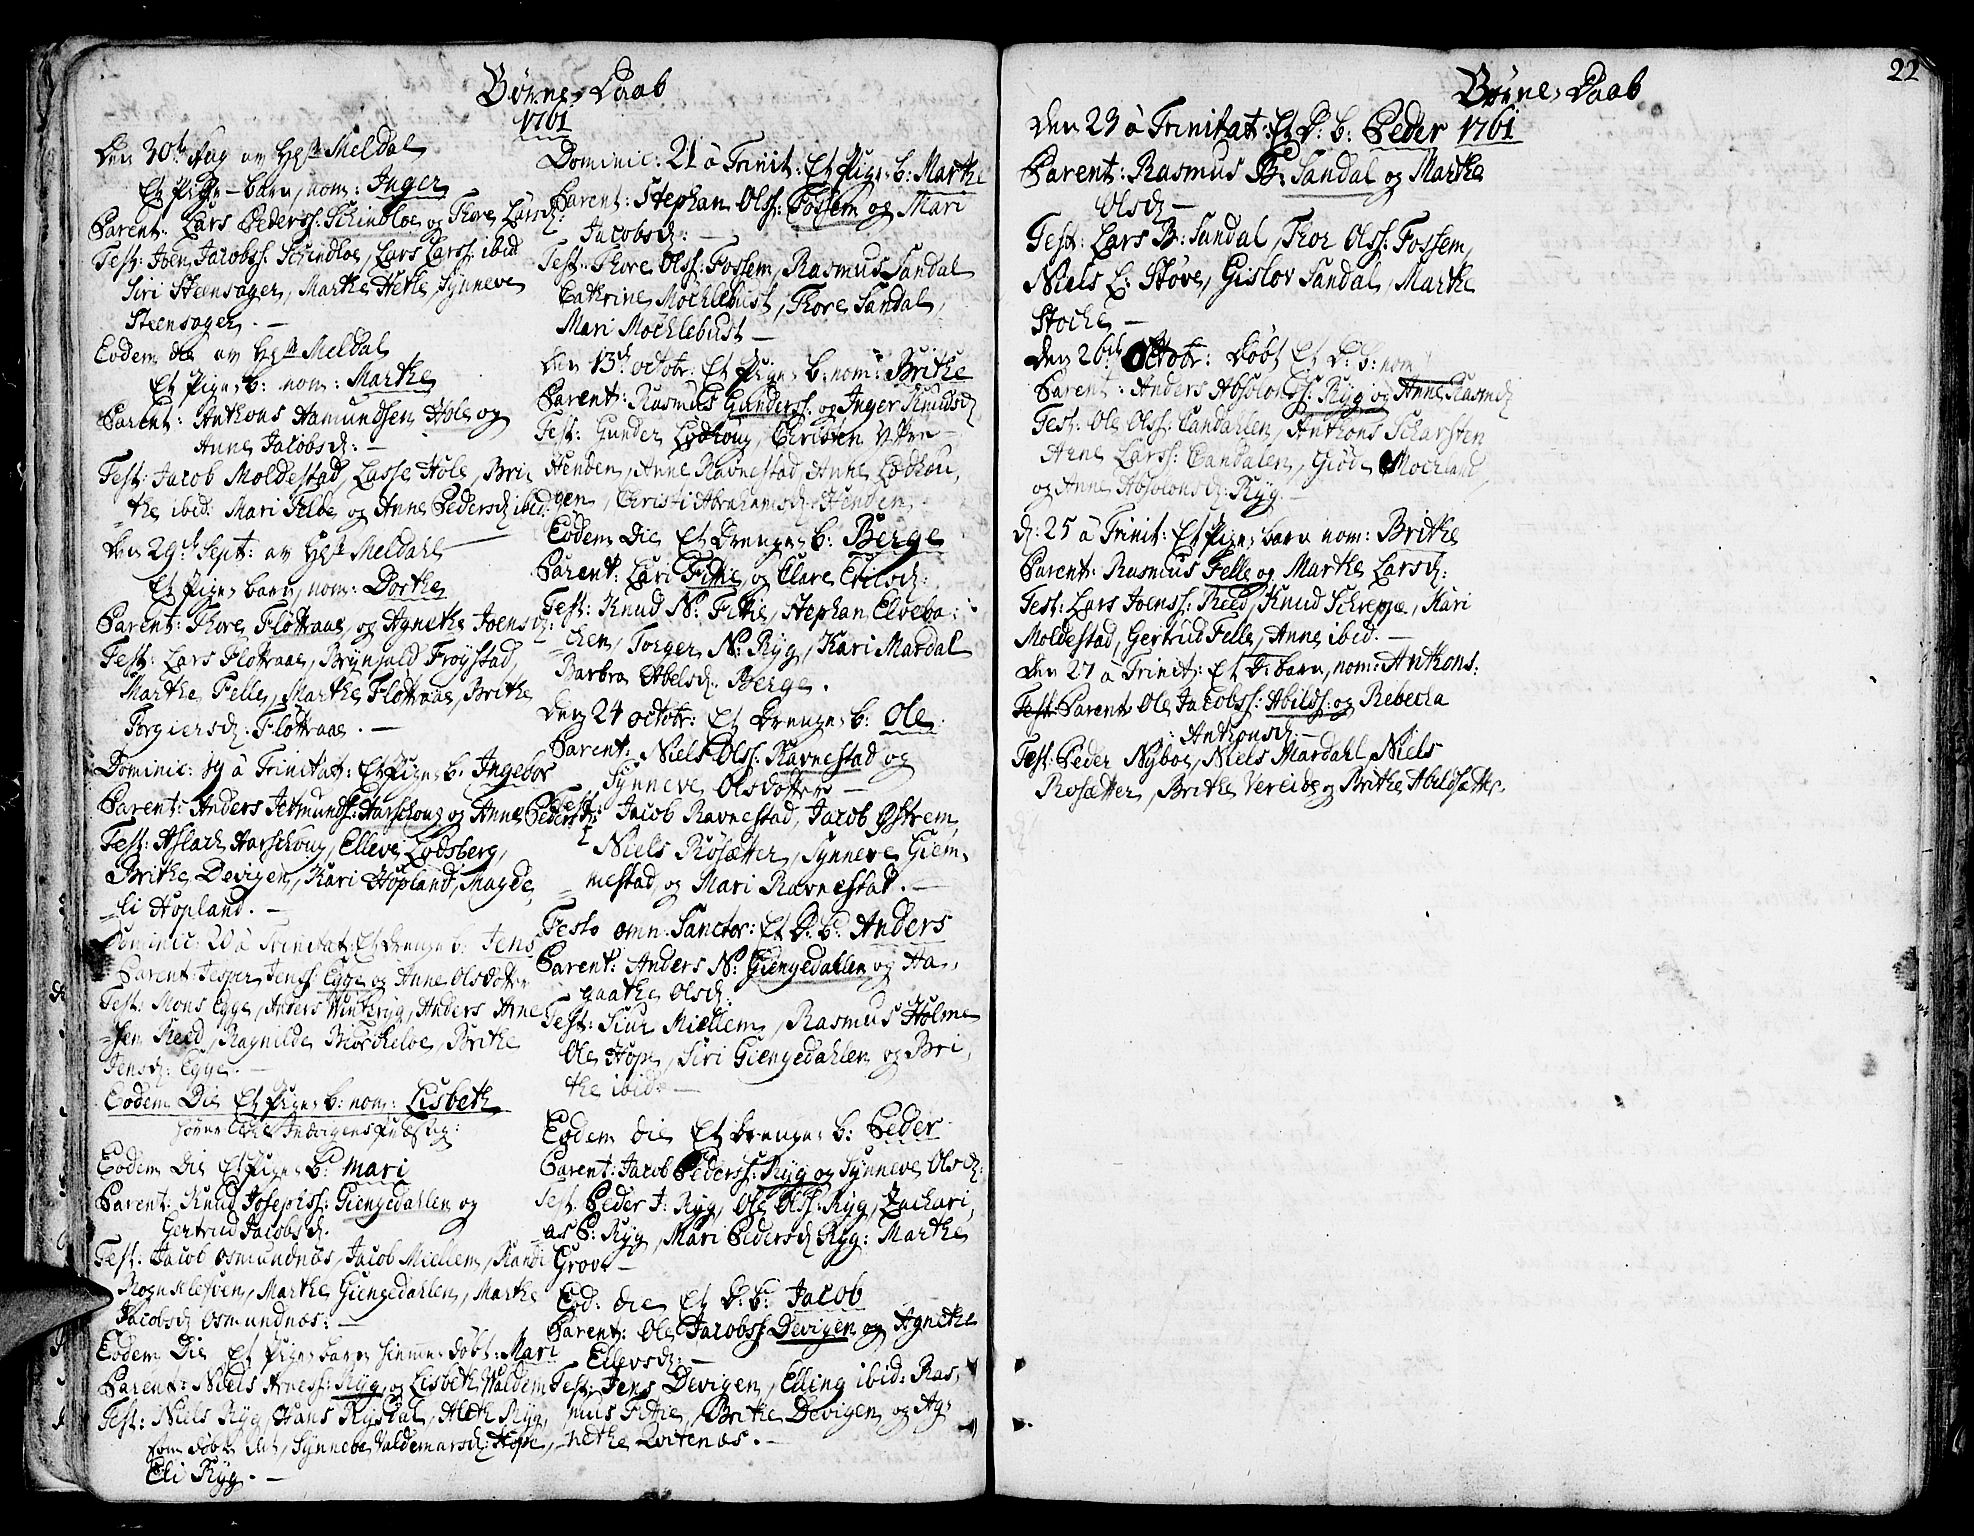 Børne-Daab
1761
Den 30te Aug av Hr Meldal
Et Pige-barn, nom: Inger
Parent: Lars Pederss: Schindloe og Thore Larsd:
Test: Joen Jacobss: Schindloe, Lars Larss: ibid
Siri Steensager, Marthe Hetle, Synneve
Steensager. —
Eodem die av Hr Meldal
Et Pige-b: nom: Marthe
Parent: Anthons Aamundsen Hole og
Anne Jacobsd: —
Test: Jacob Moldestad, Lasse Hole, Bri
the ibid: Mari Felde og Anne Pedersd ibid.
Den 29de Sept: av Hr Meldahl
Et Pige-barn, nom: Dorthe
Parent: Thore Fløttraae, og Agnethe Joensd:
Test: Lars Fløttraae, Brynjuld Frøystad,
Marthe Felle, Marthe Fløttraae, Brithe
Torgiersd: Fløttraae. —
Dominic: 19 à Trinitat: Et Pige-b: Ingebor
Parent: Anders Aamundss: Aarschoug og Anne Pedersd:
Test: Aslach Aarschoug, Elleve Lodsberg,
Brithe Devigen, Kari Hopland, Magde
li Hopland. —
Dominic: 20 à Trinitat: Et Drenge b: Jens
Parent: Jesper Jenss: Egge og Anne Olsdotter
Test: Mons Egge, Anders Winterig, Anders Arne
sen Reed, Ragnilde Biørcheloe, Brithe
Jensd: Egge. —
Eodem Die Et Pige-b: nom: Lisbeth
Eodem Die Et Pige-b: Mari
Parent: Knud Josephss: Giengedahlen og
Gertrud Jacobsd.
Test: Jacob Osmundnæs, Jacob Miellem, Randi
Rognklefven, Marthe Giengedahlen, Marthe
Jacobsd Osmundnæs: —
Eodem Die Et Pige-barn hiemme-døbt: Mari
Parent: Niels Arness: Ryg, og Lisbeth Waldem
Test: Niels Ryg, Hans Rysdal, Aleth Ryg,
som døbte det, Synneve Valdemarsd: Hope,
Eli Ryg. —
Dominic: 21 à Trinit: Et Pige-b: Marthe
Parent: Stephan Olss: Fossem og Mari
Jacobsd: —
Test: Thore Olss: Fossem, Rasmus Sandal
Cathrine Møchlebust, Thore Sandal,
Mari Møchlebust —
Den 13de octobr: Et Pige-b: nom: Brithe
Parent: Rasmus Gunderss: og Inger Knudsd
Test: Gunder Lødhoug, Christen Ytre
Henden, Anne Ravnestad, Anne Lødhou,
gen, Christi Abrahamsd: Henden,
Eodem Die Et Drenge-b: Berge
Parent: Lars Fitie, og Clare Erilsd:
Test: Knud N: Fitie, Stephan Elveba-
chen, Torger N: Ryg, Kari Mardal
Barbra Abelsd: Berge.
Den 24 octobr: Et Drenge-b: Ole
Parent: Niels Olss: Ravnestad og
Synneve Olsdotter —
Test: Jacob Ravnestad, Jacob Østrem,
Niels Rosætter, Synneve Giem-
mestad, og Mari Ravnestad. —
Festo omn: Sanctor: Et D: b: Anders
Parent: Anders N: Giengedahlen og Aa,
gaathe Olsd:
Test: Siur Miellem, Rasmus Holme
Ole Hope, Siri Giengedahlen og Bri,
the ibid: —
Eodem die Et Drenge-b: Peder
Parent: Jacob Pederss: Ryg og Synneve Olsd:
Test: Peder J: Ryg, Ole Olss: Ryg, Zachari,
as P: Ryg, Mari Pedersd Ryg: Marthe
Grove —
Eod: die Et D: b: Jacob
Parent: Ole Jacobss: Devigen og Agnethe
Ellevsd: —
Test: Jens Devigen, Elling ibid: Ras,
mus Fitie, Brithe Devigen og Ag-
nethe Qvitenæs. —
22
Børne-Daab
Den 23 à Trinitat: Et D: b: Peder 1761
Parent: Rasmus B: Sandal og Marthe
Olsd —
Test: Lars B: Sandal, Thor Olss: Fossem,
Niels L: Støve, Gislov Sandal, Marthe
Stoche —
Den 26de Octobr: døbt Et D: b: nom
Parent: Anders Absolonss: Ryg og Anne Rasmd
Test: Ole Olss: Sandalen, Anthons Scharsten
Arne Larss: Sandalen, Giøde Mochland,
og Anne Absolonsd: Ryg. —
d: 25 à Trinit: Et Pige-barn nom: Brithe
Parent: Rasmus Felle og Marthe Larsd:
Test: Lars Joenss: Reed, Knud Schrepje, Kari
Moldestad, Gertrud Felle, Anne ibid. —
Den 27 à Trinit: Et D: barn, nom: Anthons.
Test: Parent: Ole Jacobss: Abilds: og Rebecha
Anthonsd: —
Test: Peder Nyboe, Niels Mardahl, Niels
Rosætter, Brithe Vereide og Brithe Abeldsætter